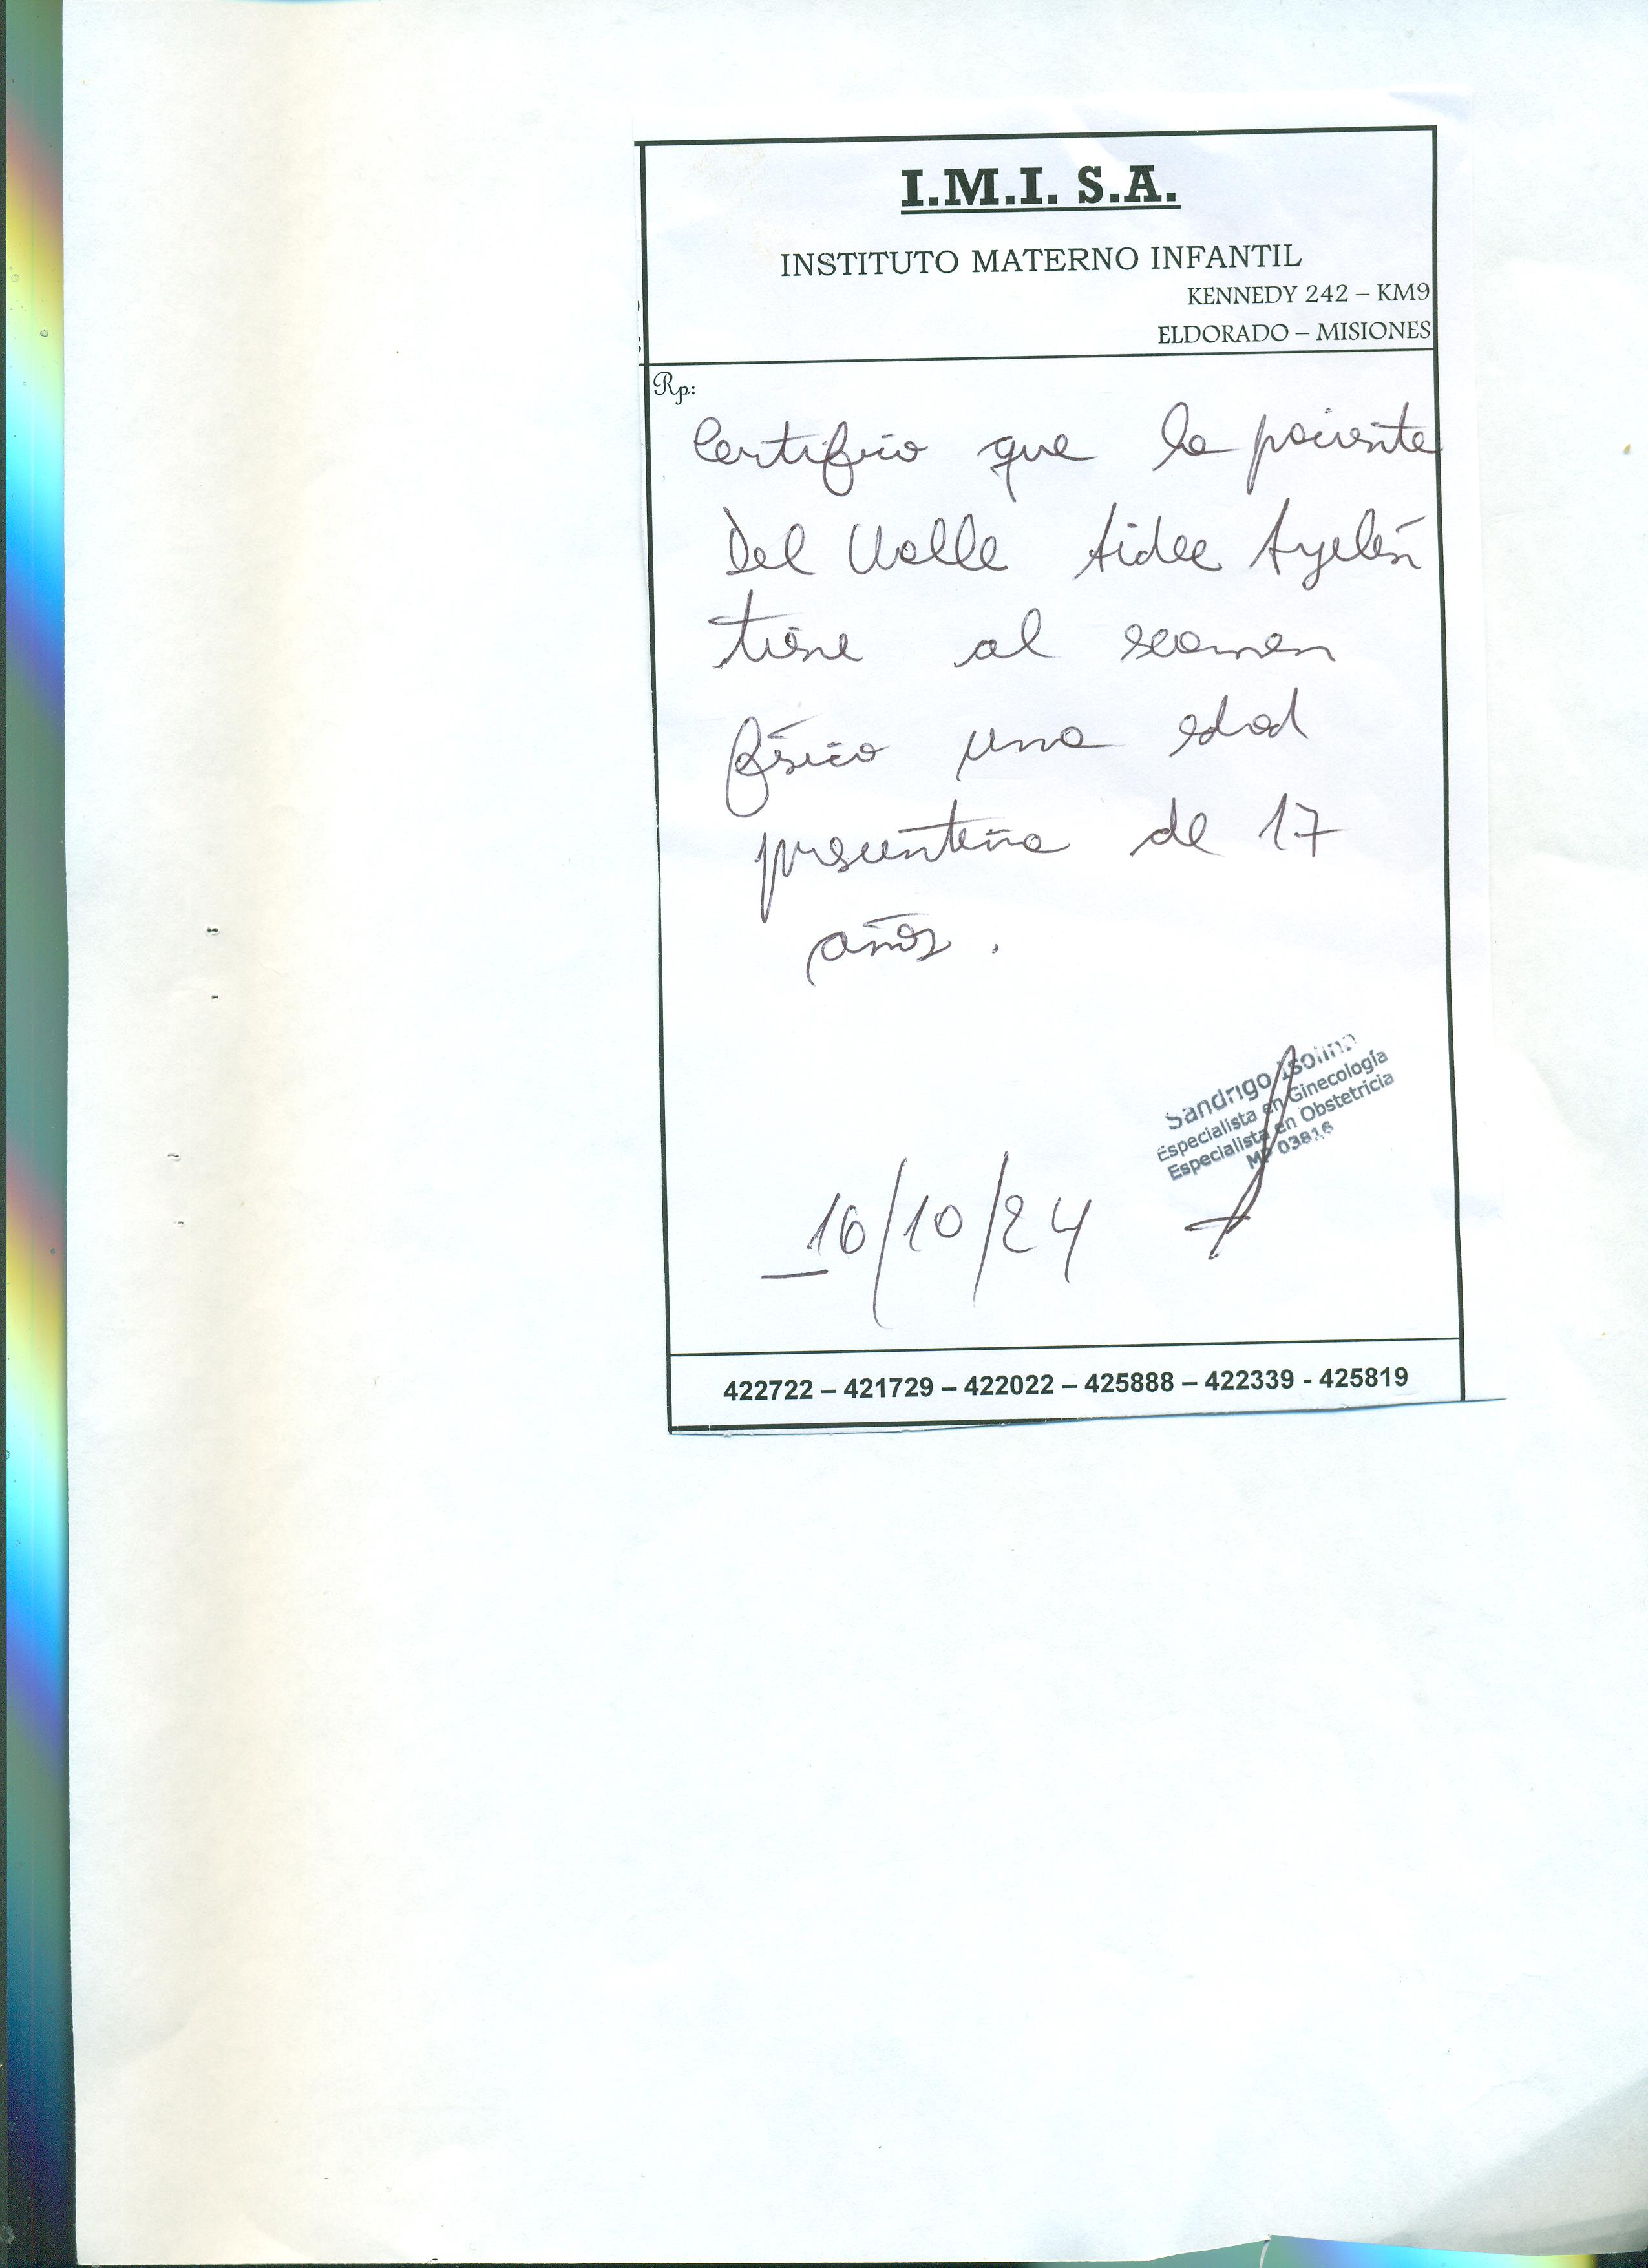 I.M.I. S.A.
INSTITUTO MATERNO INFANTIL
KENNEDY 242 – KM9
ELDORADO – MISIONES
Rp:
Certifico que la paciente
Del Valle Aidee Ayelén
tiene al examen
físico una edad
presuntiva de 17
años.
Sandrigo Isolina
Especialista en Ginecología
Especialista en Obstetricia
MP 03816
16/10/24
422722 – 421729 – 422022 – 425888 – 422339 - 425819